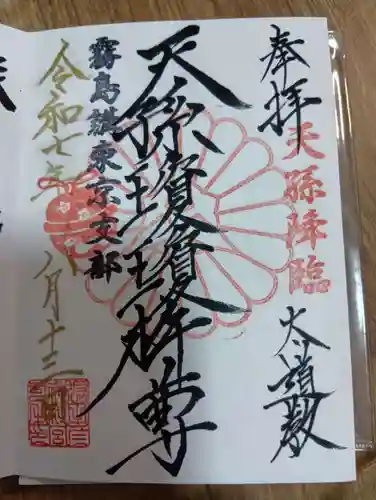 奉拝
天孫降臨
太道教
天孫瓊瓊杵尊
霧島講東京支部
令和七年八月十三日